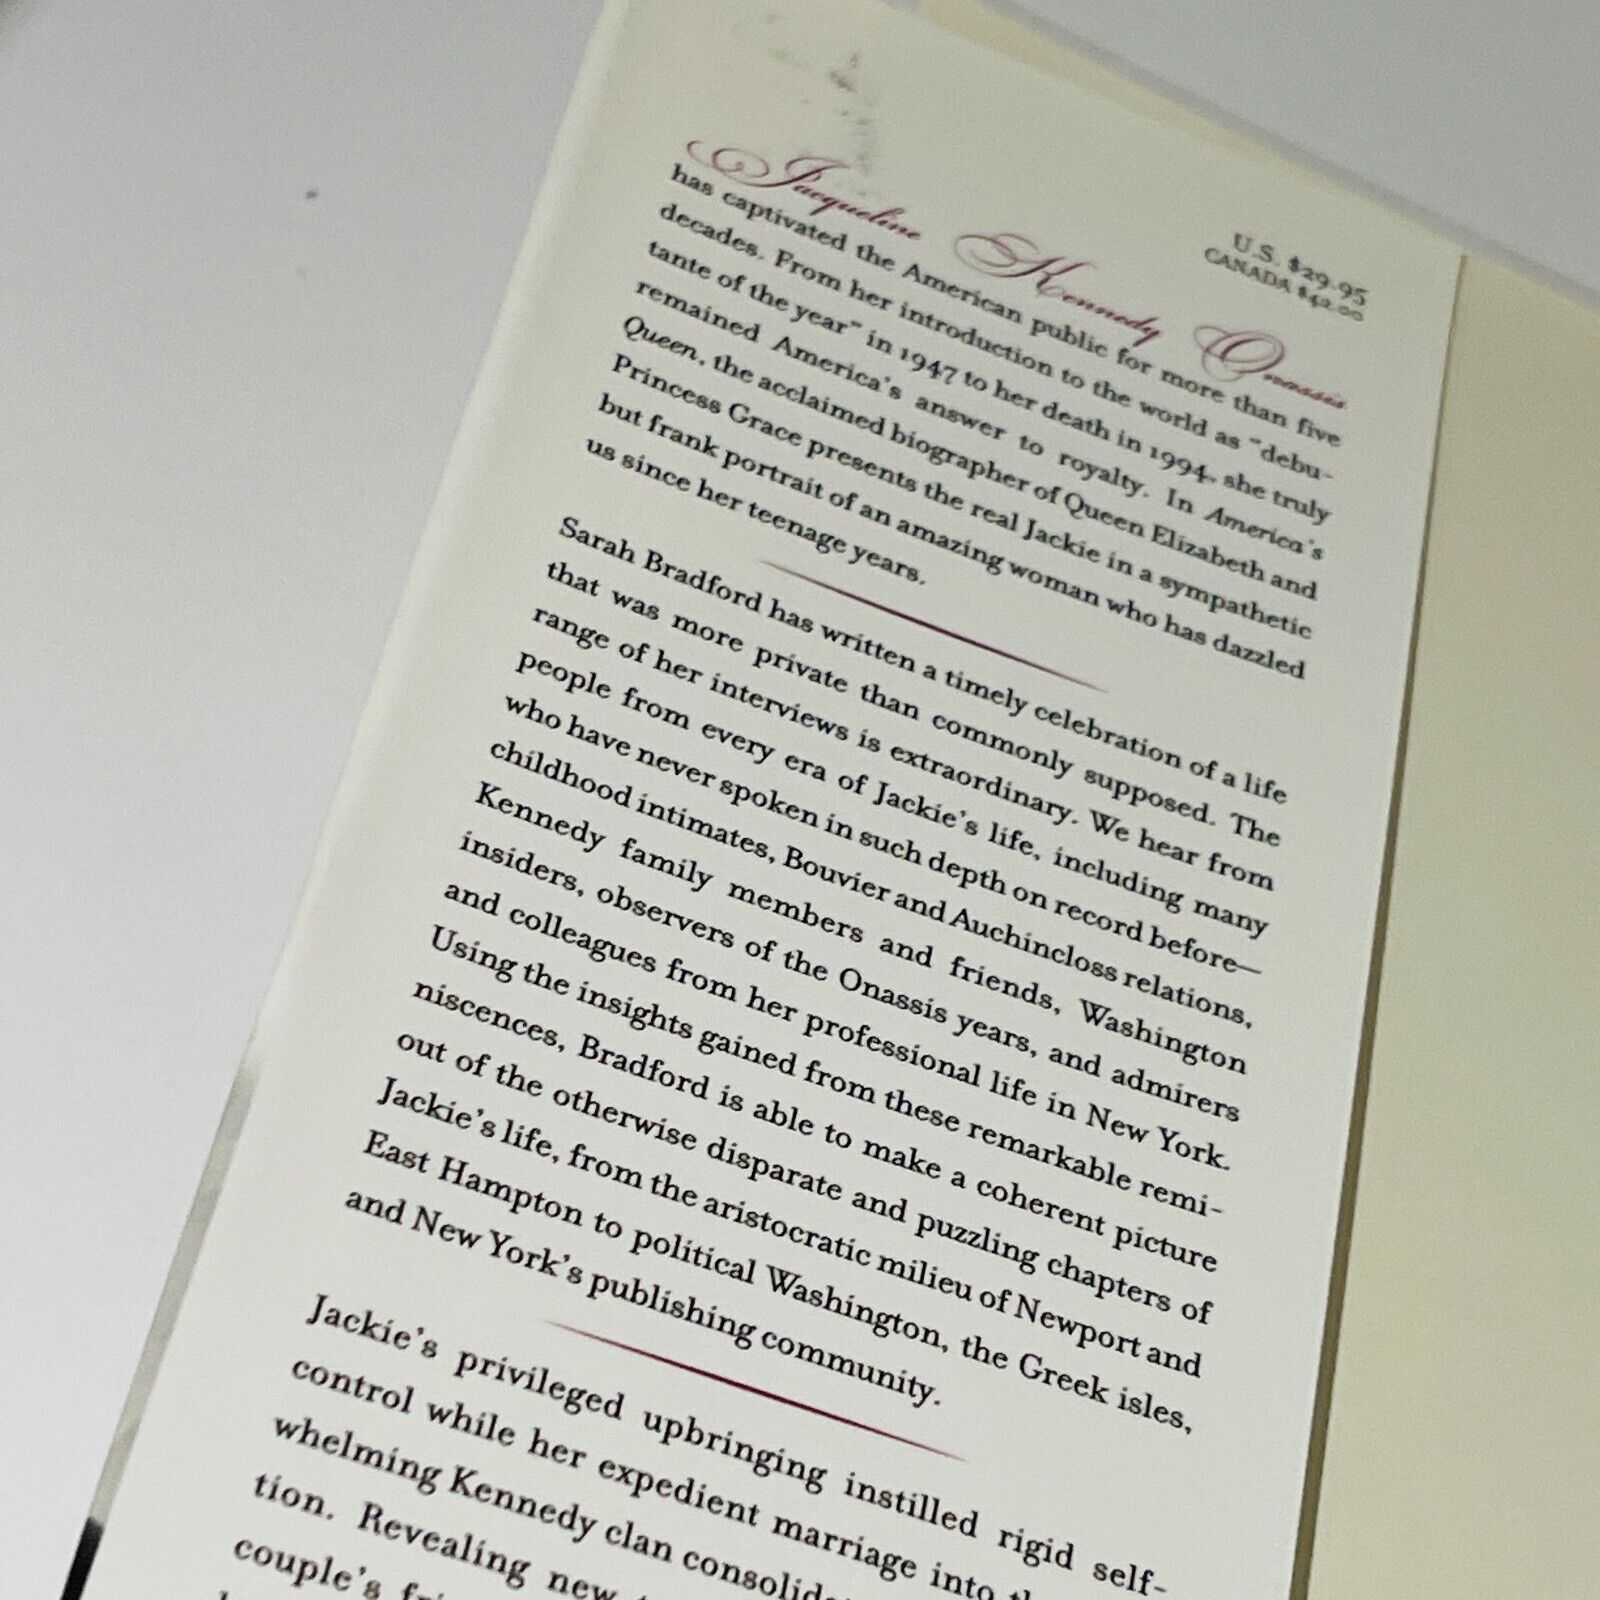 U.S. $29.95
CANADA $42.00
Jacqueline Kennedy Onassis
has captivated the American public for more than five
decades. From her introduction to the world as "debu-
tante of the year" in 1947 to her death in 1994, she truly
remained America's answer to royalty. In America's
Queen, the acclaimed biographer of Queen Elizabeth and
Princess Grace presents the real Jackie in a sympathetic
but frank portrait of an amazing woman who has dazzled
us since her teenage years.
Sarah Bradford has written a timely celebration of a life
that was more private than commonly supposed. The
range of her interviews is extraordinary. We hear from
people from every era of Jackie's life, including many
who have never spoken in such depth on record before—
childhood intimates, Bouvier and Auchincloss relations,
Kennedy family members and friends, Washington
insiders, observers of the Onassis years, and admirers
and colleagues from her professional life in New York.
Using the insights gained from these remarkable remi-
niscences, Bradford is able to make a coherent picture
out of the otherwise disparate and puzzling chapters of
Jackie's life, from the aristocratic milieu of Newport and
East Hampton to political Washington, the Greek isles,
and New York's publishing community.
Jackie's privileged upbringing instilled rigid self-
control while her expedient marriage into
whelming Kennedy clan
tion. Revealing new
couple's